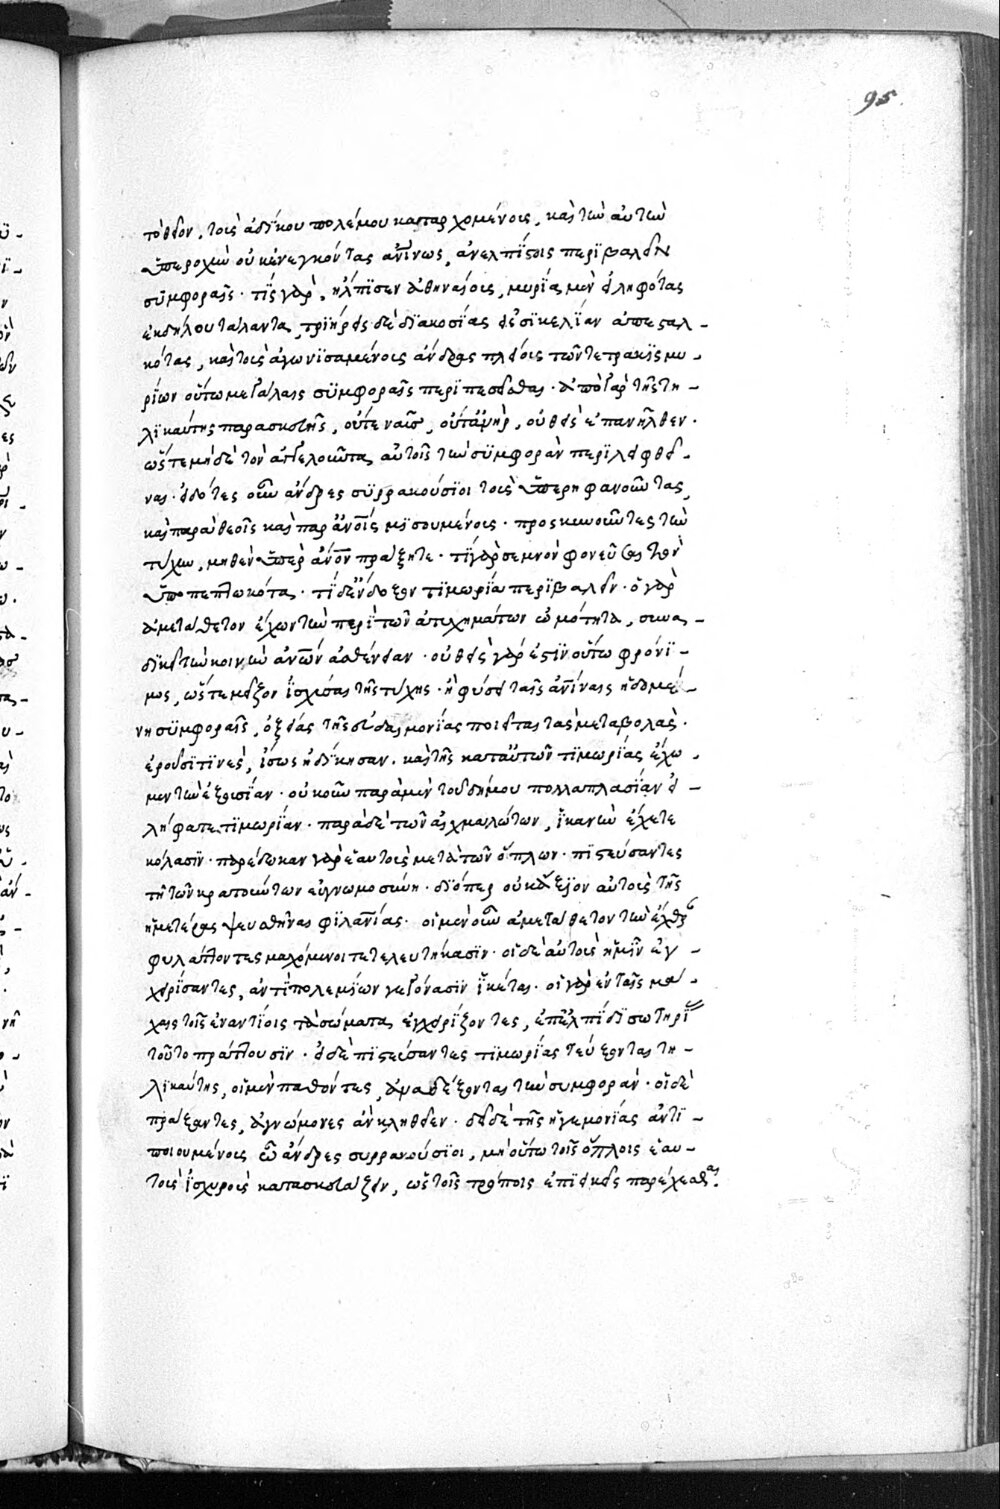 95
τὸ θεῖον, τοῖς ἀδίκου πολέμου καταρχομένοις, καὶ τὴν αὑτῶν
ὑπεροχὴν οὐκ ἐνεγκόντας ἀνίνως, ἀνελπίστοις περιβαλεῖν
συμφοραῖς· τίς γὰρ, ἤλπισεν ἀθηναίοις, μυρία μὲν εἰληφότας
ἐκ δήλου τάλαντα, τριήρεις δὲ διακοσίας εἰς σικελίαν ἀπεσταλ-
κότας, καὶ τοὺς ἀγωνισαμένοις ἄνδρας πλείοις τῶν τετρακισμυ-
ρίων οὕτω μεγάλαις συμφοραῖς περιπεσεῖσθαι· ἀπὸ γὰρ τῆς τη-
λικαύτης παρασκευῆς, οὔτε ναῦς, οὔτ' ἀνὴρ, οὐθεὶς ἐπανῆλθεν·
ὥστε μηδὲ τὸν ἀπαγγελοῦντα αὐτοῖς τὴν συμφορὰν περιλειφθεῖ-
ναι· εἰδότες οὖν ἄνδρες συρρακούσιοι τοὺς ὑπερηφανοῦντας,
καὶ παρὰ θεοῖς καὶ παρ' ἀνοις μισουμένοις· προσκυνοῦντες τὴν
τύχην, μηθὲν ὑπὲρ ἄνον πράξητε· τί γὰρ σεμνὸν φονεῦσαι τὸν
ὑποπεπτωκότα· τί δ' ἔνδοξον τιμωρία περιβαλεῖν· ὁ γὰρ
ἀμετάθετον ἔχων τὴν περὶ τῶν ἀτυχημάτων ὠμότητα, συνα-
δικεῖ τὴν κοινὴν ἀνων ἀσθένειαν· οὐθεὶς γάρ ἐστιν οὕτω φρόνι-
μος, ὥστε μεῖζον ἰσχῦσαι τῆς τύχης· ἣ φύσει ταῖς ἀνίναις ἡδομέ-
νη συμφοραῖς, ὀξείας τῆς εὐδαιμονίας ποιεῖται τὰς μεταβολὰς·
ἐροῦσί τινὲς, ἴσως ἠδίκησαν, καὶ τῆς κατ' αὐτῶν τιμωρίας ἔχο-
μεν τὴν ἐξουσίαν· οὐκοῦν παρὰ μὲν τοῦ δήμου πολλαπλασίαν εἰ-
λήφατε τιμωρίαν· παρὰ δὲ τῶν αἰχμαλώτων, ἱκανὴν ἔχετε
κόλασιν· παρέδωκαν γὰρ ἑαυτοὺς μετὰ τῶν ὅπλων· πιστεύσαντες
τῇ τῶν κρατούντων εὐγνωμοσύνῃ· διόπερ οὐκ ἄξιον αὐτοὺς τῆς
ἡμετέρας ψευσθῆναι φιλανίας· οἱ μὲν οὖν ἀμετάθετον τὴν ἔχθραν
φυλάττοντες μαχόμενοι τετελευτήκασιν· οἱ δὲ αὐτοὺς ἡμῖν ἐγ-
χειρίσαντες, ἀντὶ πολεμίων γεγόνασιν ἱκέται· οἱ γὰρ ἐν ταῖς μά-
χαις τοῖς ἐναντίοις τὰ σώματα ἐγχειρίζοντες, ἐπ' ἐλπίδι σωτηρίας
τοῦτο πράττουσιν· εἰ δὲ πιστεύσαντες τιμωρίας τεύξονται τη-
λικαύτης, οἱ μὲν παθόντες, ἀναδέξονται τὴν συμφορὰν· οἱ δὲ
πράξαντες, ἀγνώμονες ἂν κληθεῖεν· δεῖ δὲ τῆς ἡγεμονίας ἀντι-
ποιουμένοις ὦ ἄνδρες συρρακούσιοι, μὴ οὕτω τοῖς ὅπλοις ἑαυ-
τοὺς ἰσχυροὺς κατασκευάζειν, ὡς τοῖς τρόποις ἐπιεικεῖς παρέχεσθαι.